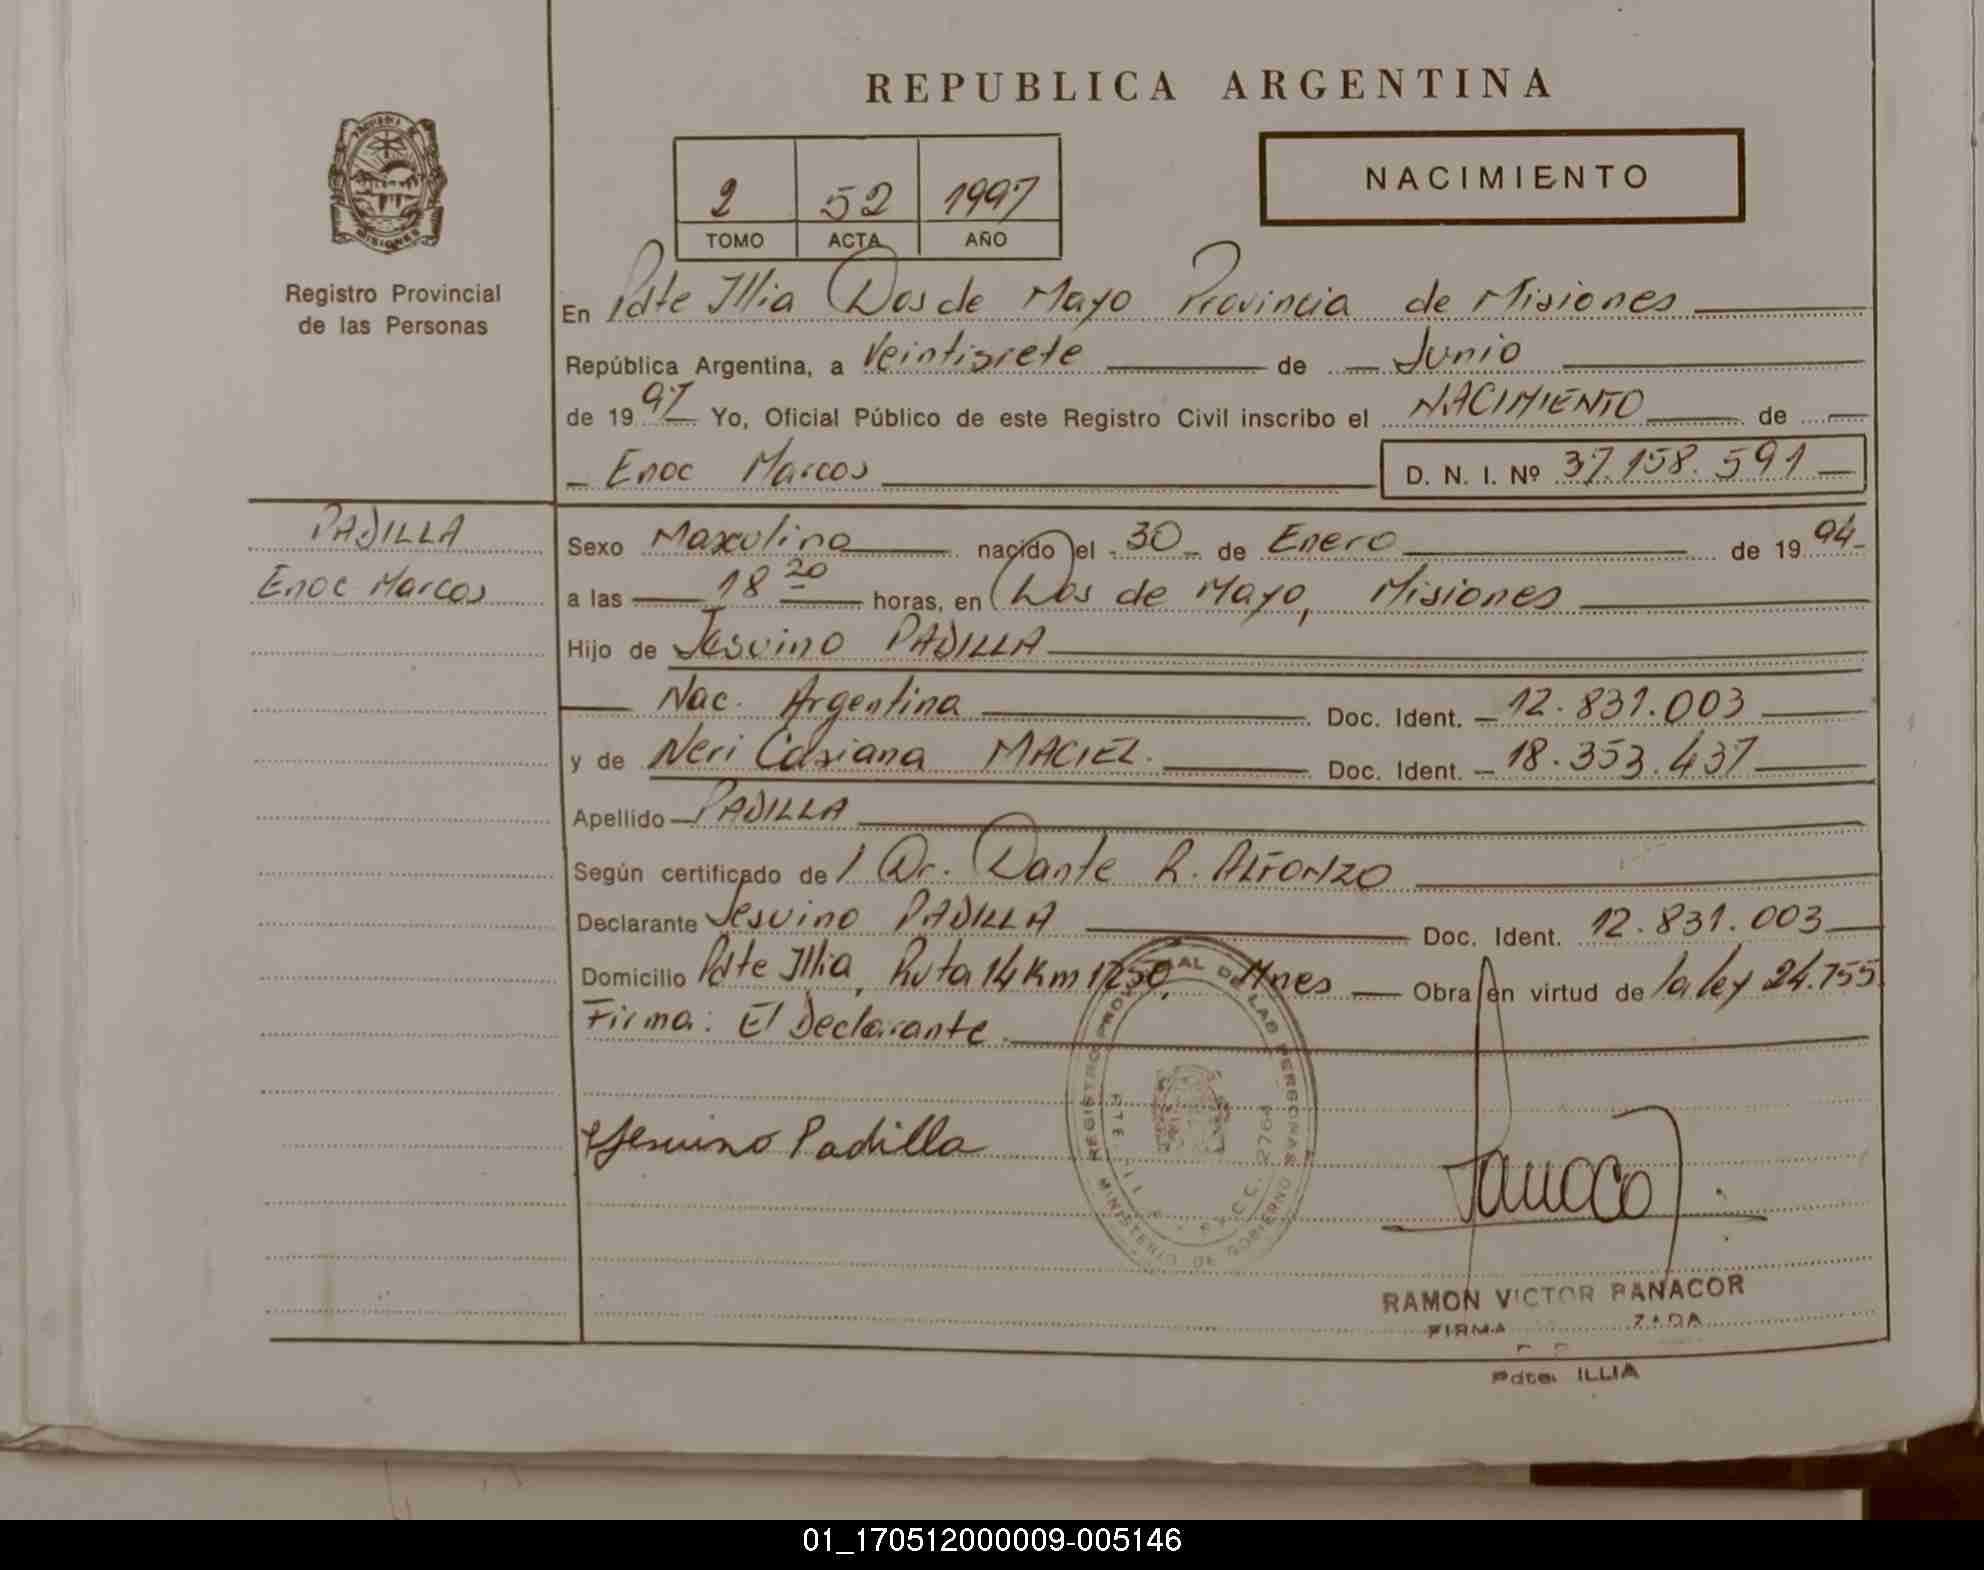 REPUBLICA ARGENTINA
NACIMIENTO
2 52 1997
TOMO ACTA AÑO
MISIONES
Registro Provincial
de las Personas
En Pdte Illia Dos de Mayo Provincia de Misiones
República Argentina, a Veintisiete de Junio
de 1997 Yo, Oficial Público de este Registro Civil inscribo el NACIMIENTO de
Enoc Marcos D. N. I. Nº 37.158.591
PADILLA
Enoc Marcos
Sexo Masculino nacido el 30 de Enero de 1994
a las 18 20 horas, en Dos de Mayo, Misiones
Hijo de Jesuino PADILLA
Nac. Argentina Doc. Ident. 12.831.003
y de Neri Casiana MACIEL. Doc. Ident. 18.353.437
Apellido PADILLA
Según certificado de Dr. Dante R. Alfonzo
Declarante Jesuino PADILLA Doc. Ident. 12.831.003
Domicilio Pdte Illia, Ruta 14 Km 1250, Mnes Obra en virtud de la ley 24.755
Firma: El Declarante
REGISTRO PROVINCIAL DE LAS PERSONAS
MINISTERIO DE GOBIERNO
C.C. 2764
Jesuino Padilla
RAMON VICTOR PANACOR
FIRMA
Pdte. ILLIA
01_170512000009-005146